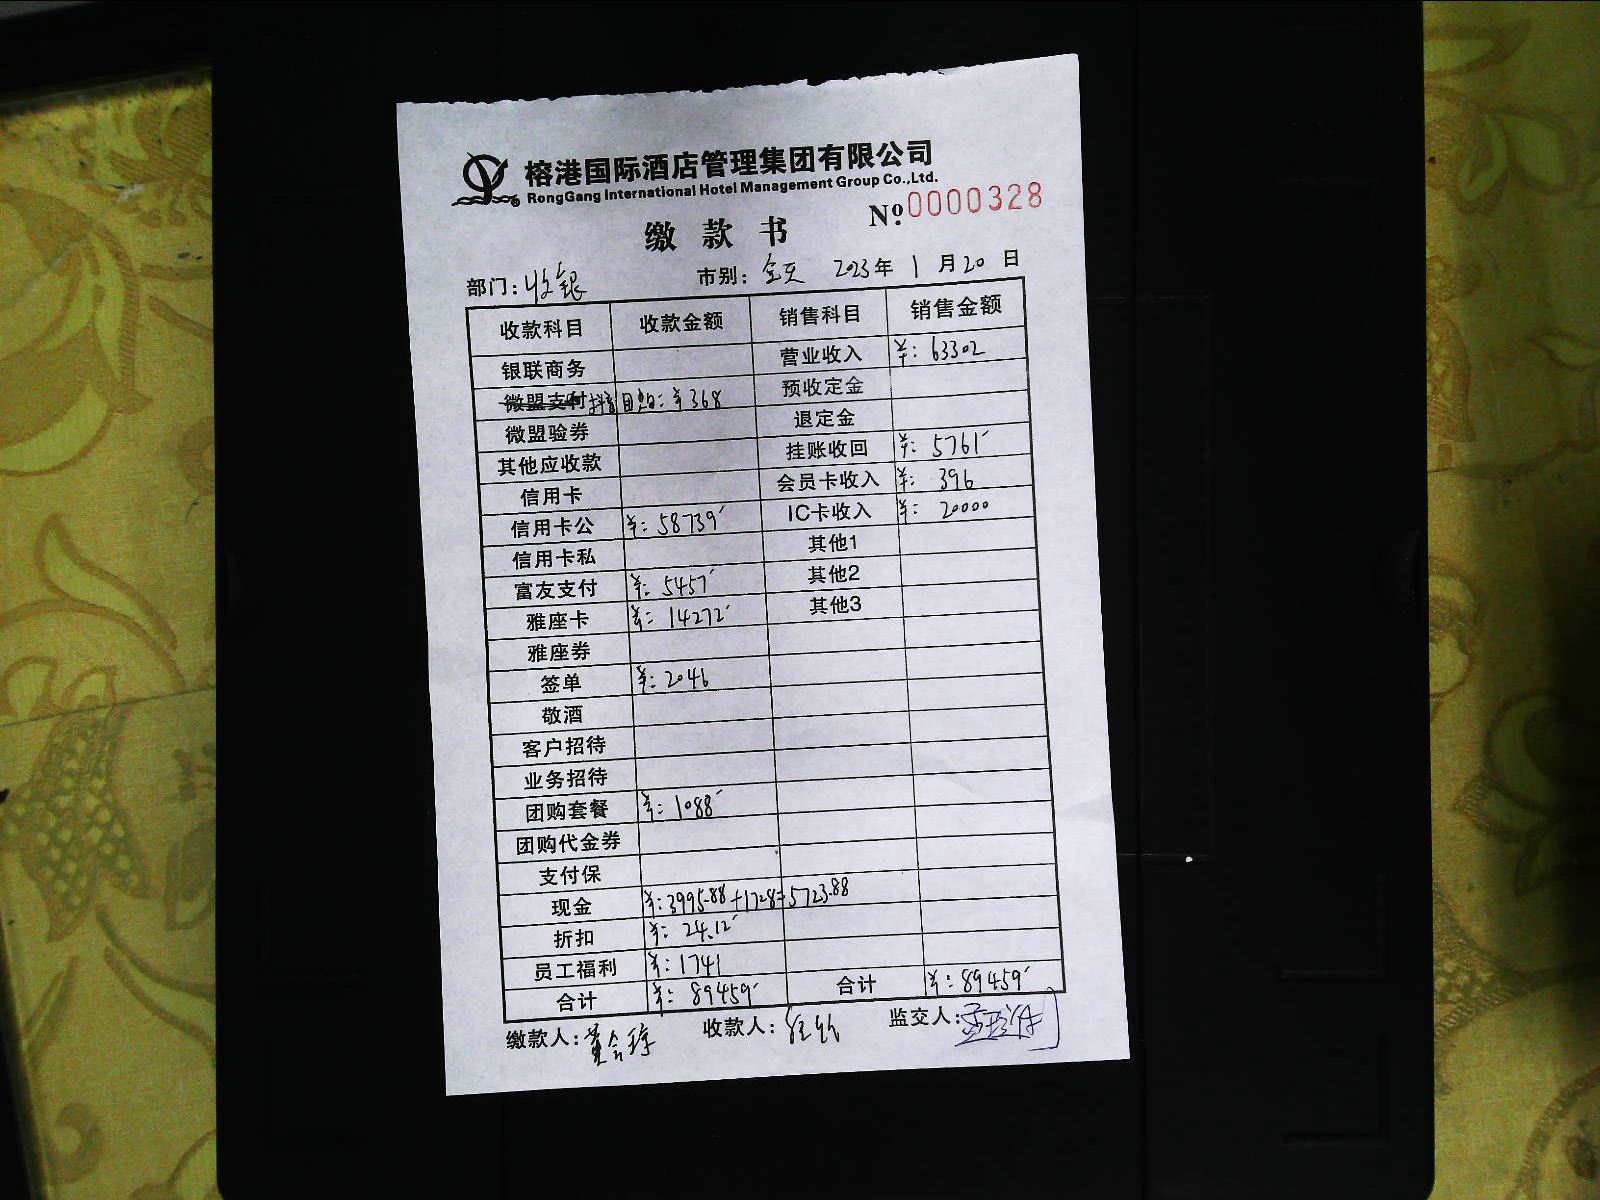 榕港国际酒店管理集团有限公司
RongGang International Hotel Management Group Co.,Ltd.
缴款书 № 0000328
部门：收银 市别：全天 2023年 1月20日
收款科目 收款金额 销售科目 销售金额
银联商务 营业收入 ¥：63302
微盟支付 抖音团购：¥368 预收定金
微盟验券 退定金
其他应收款 挂账收回 ¥：5761
信用卡 会员卡收入 ¥：396
信用卡公 ¥：58739 IC卡收入 ¥：20000
信用卡私 其他1
富友支付 ¥：5457 其他2
雅座卡 ¥：14272 其他3
雅座券
签单 ¥：2046
敬酒
客户招待
业务招待
团购套餐 ¥：1088
团购代金券
支付保
现金 ¥：3995.88+1728=5723.88
折扣 ¥：24.12
员工福利 ¥：1741
合计 ¥：89459 合计 ¥：89459
缴款人： 收款人： 监交人：